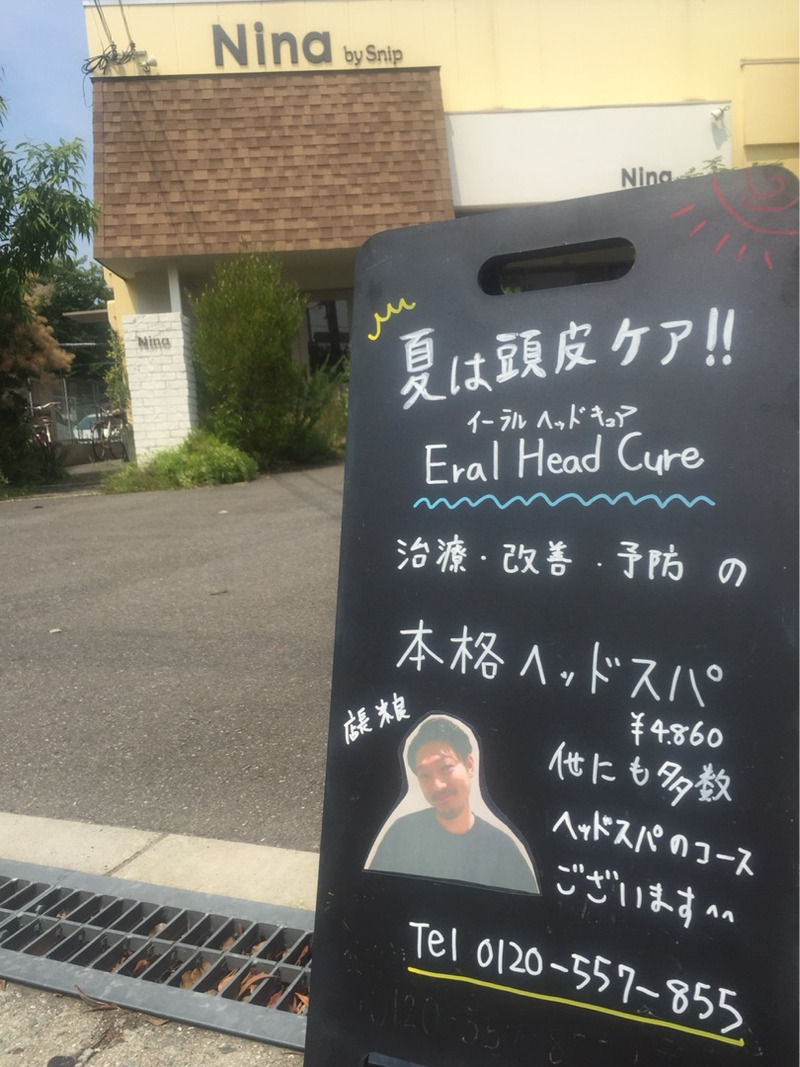 Nina by Snip
Nina
Nina
夏は頭皮ケア!!
イーラル ヘッドキュア
Eral Head Cure
治療・改善・予防の
本格ヘッドスパ
¥4.860
店長 米良
他にも多数
ヘッドスパのコース
ございます^^
Tel 0120-557-855